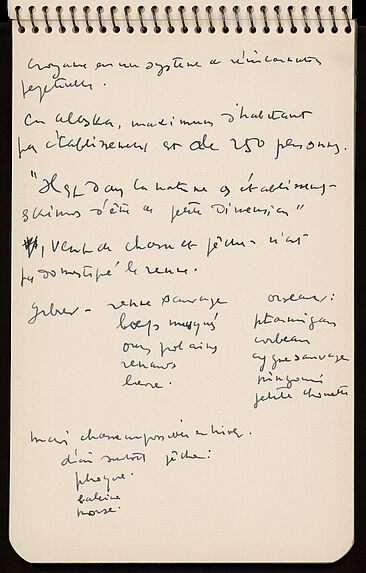 Croyance en un système de réincarnation
perpétuelle.
En Alaska, maximum d'habitant
par établissement est de 250 personnes.
"Il est dans la nature des établissements
eskimos d'être de petite dimension"
, vivent de chasse et pêche - n'ont
pas domestiqué le renne.
Gibier - renne sauvage
boeufs musqués
ours polaires
renards
lièvre.
oiseaux :
ptarmigan
corbeau
cygne sauvage
pingouin
petite chouette
mais chasse impossible en hiver.
d'où surtout pêche :
phoque.
baleine
morse.